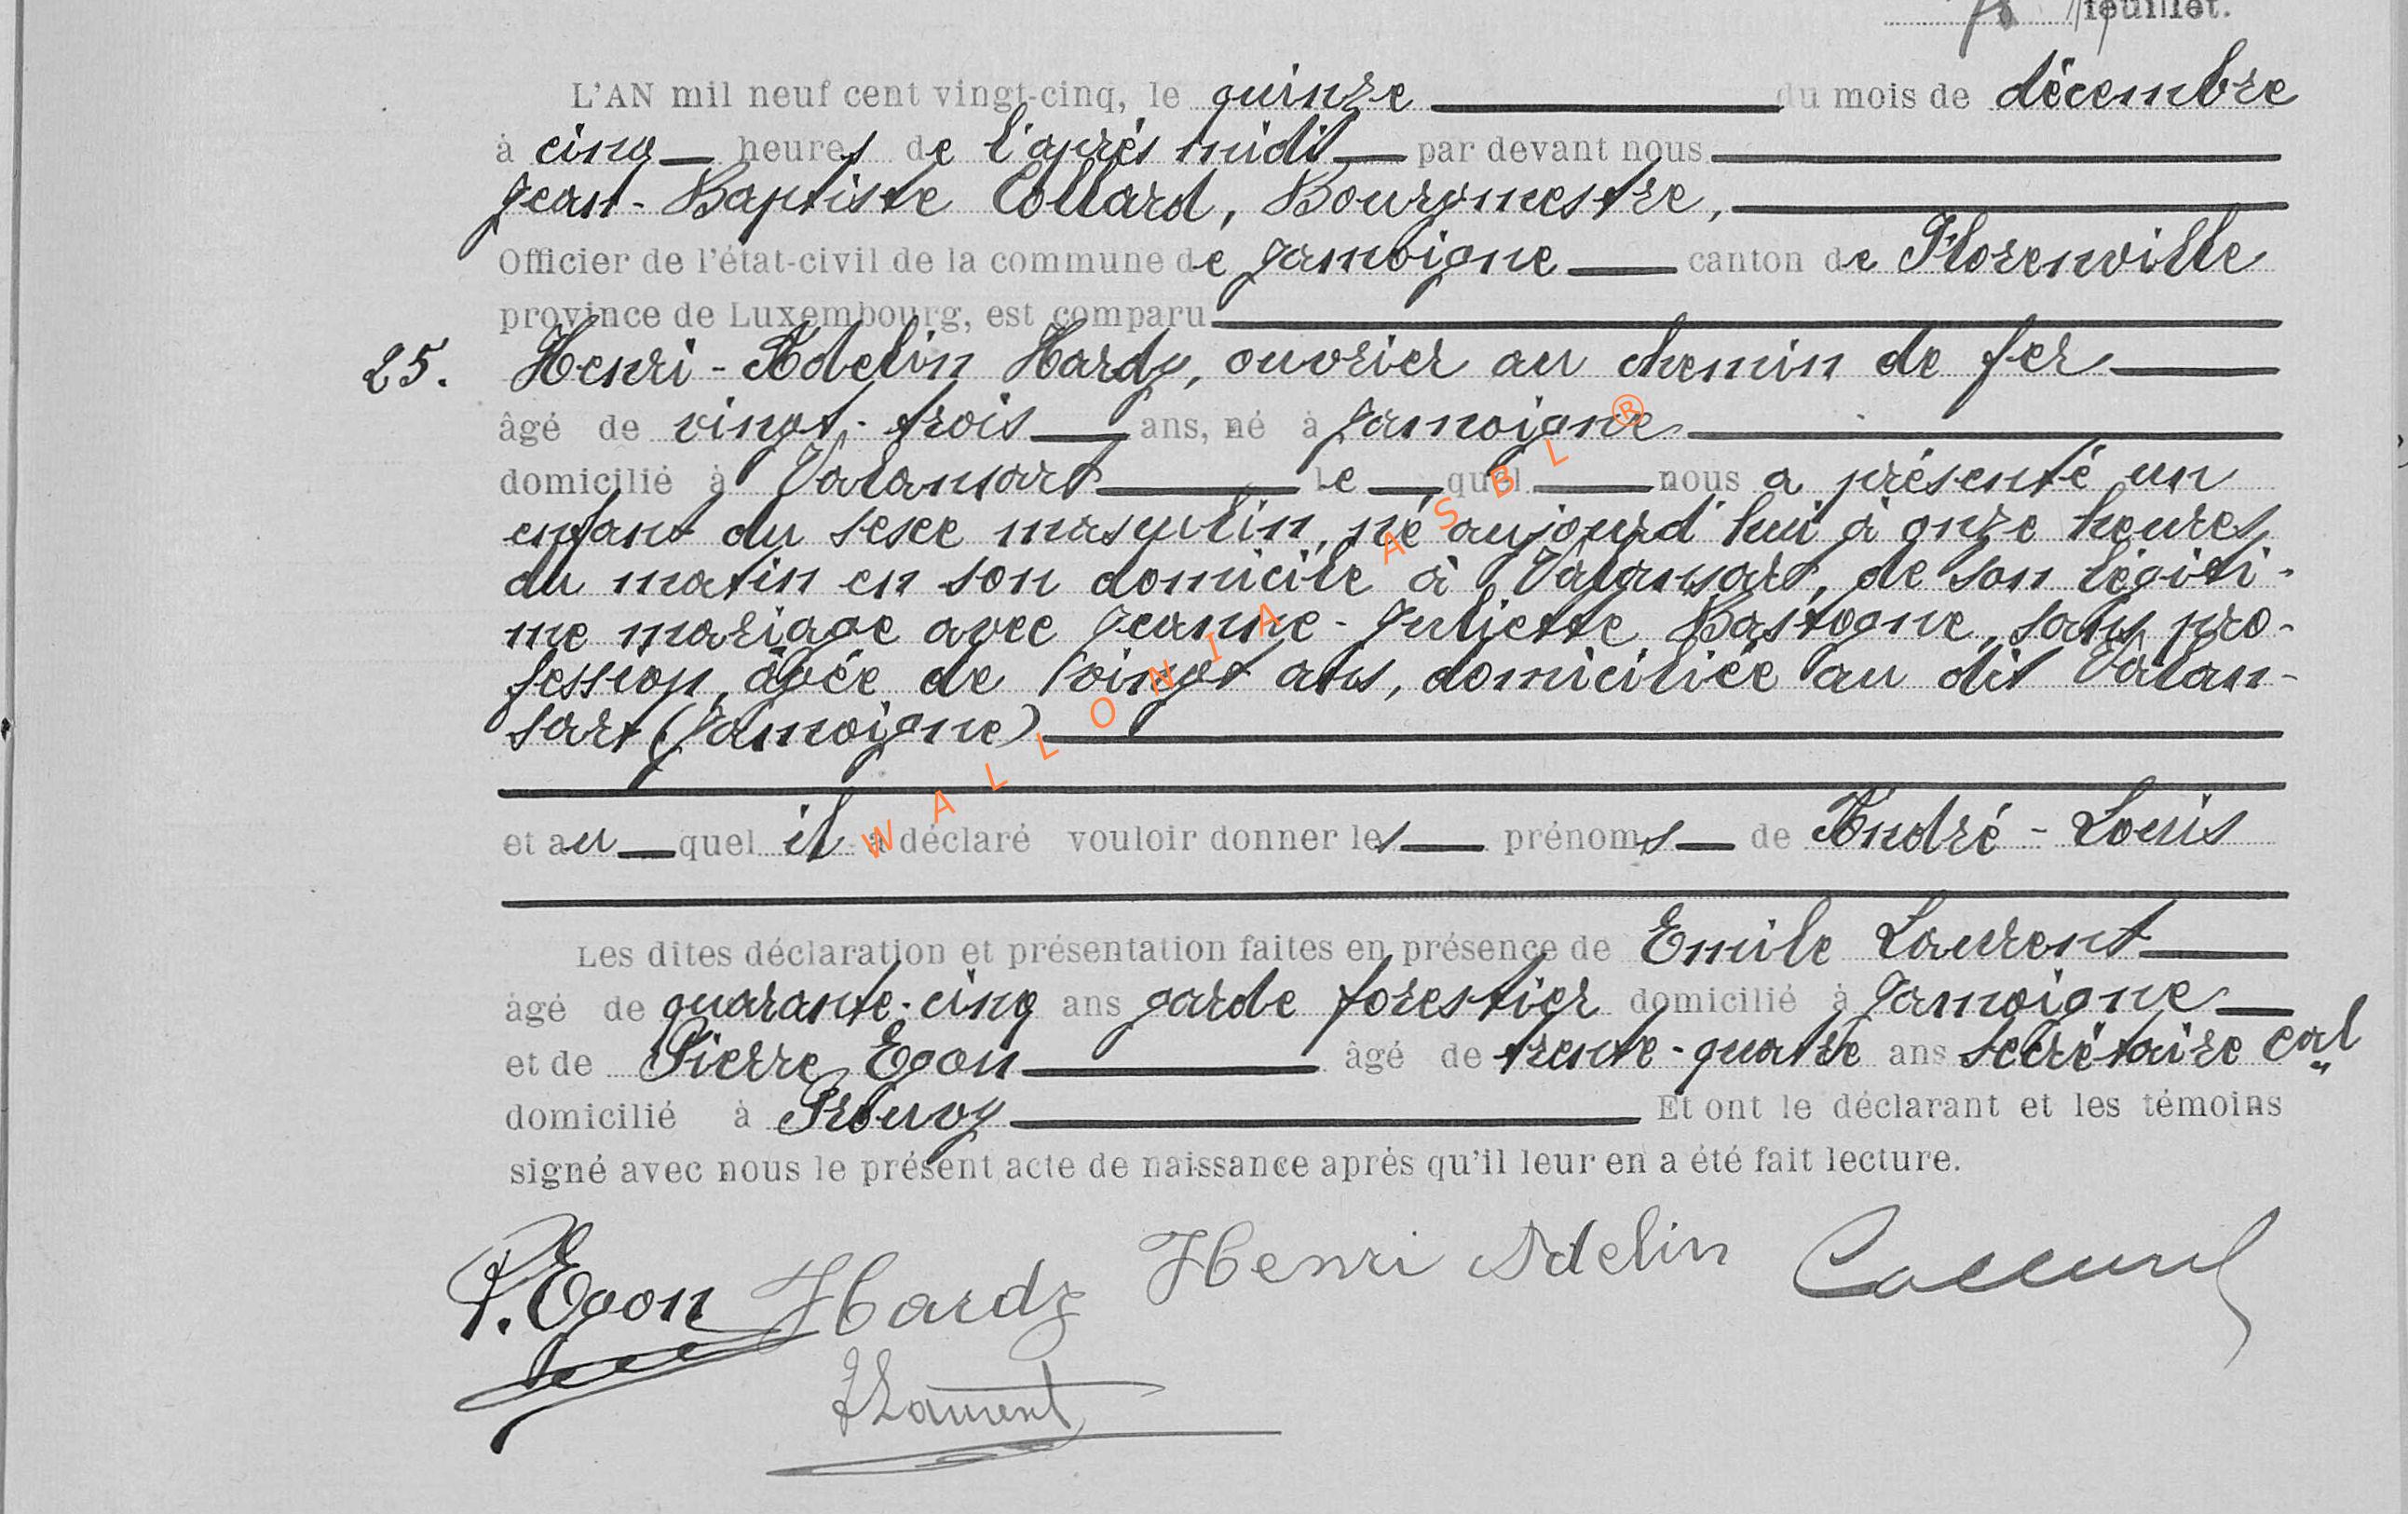 feuillet.
L'AN mil neuf cent vingt-cinq, le quinze du mois de décembre
à cinq heures de l'après midi par devant nous
Jean-Baptiste Collard, Bourgmestre,
Officier de l'état-civil de la commune de Jamoigne canton de Florenville
province de Luxembourg, est comparu
25. Henri-Adelin Hardy, ouvrier au chemin de fer
âgé de vingt-trois ans, né à Jamoigne
domicilié à Valansart le quel nous a présenté un
enfant du sexe masculin, né aujourd'hui à onze heures
du matin en son domicile à Valansart, de son légiti-
me mariage avec Jeanne-Juliette Bastogne, sans pro-
fession, âgée de vingt ans, domiciliée au dit Valan-
sart (Jamoigne)
et au quel il a déclaré vouloir donner les prénoms de André-Louis
Les dites déclaration et présentation faites en présence de Emile Laurent
âgé de quarante-cinq ans garde forestier domicilié à Jamoigne
et de Pierre Egon âgé de trente-quatre ans secrétaire cal
domicilié à Prouvy Et ont le déclarant et les témoins
signé avec nous le présent acte de naissance après qu'il leur en a été fait lecture.
P. Egon Hardy Henri Adelin Collard
Laurent
WALLONIA ASBL ®